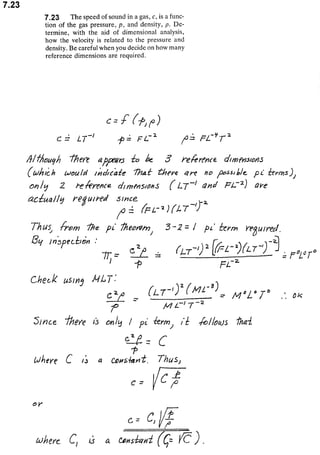 7.23
7.23 The speed of sound in a gas, c, is a func-
tion of the gas pressure, p, and density, ρ. De-
termine, with the aid of dimensional analysis,
how the velocity is related to the pressure and
density. Be careful when you decide on how many
reference dimensions are required.
c = f (p, ρ)
c ≐ LT⁻¹ p ≐ FL⁻² ρ ≐ FL⁻⁴T²
Although there appears to be 3 reference dimensions
(which would indicate that there are no possible pi terms),
only 2 reference dimensions (LT⁻¹ and FL⁻²) are
actually required since
ρ ≐ (FL⁻²)(LT⁻¹)⁻²
Thus, from the pi theorem, 3-2 = 1 pi term required.
By inspection :
π₁ = c²ρ/p ≐ (LT⁻¹)²[(FL⁻²)(LT⁻¹)⁻²]/FL⁻² ≐ F⁰L⁰T⁰
Check using MLT:
c²ρ/p ≐ (LT⁻¹)²(ML⁻³)/ML⁻¹T⁻² = M⁰L⁰T⁰ ∴ OK
Since there is only 1 pi term, it follows that
c²ρ/p = C
where C is a constant. Thus,
c = √(C p/ρ)
or
c = C₁√(p/ρ)
where C₁ is a constant (C₁ = √C).